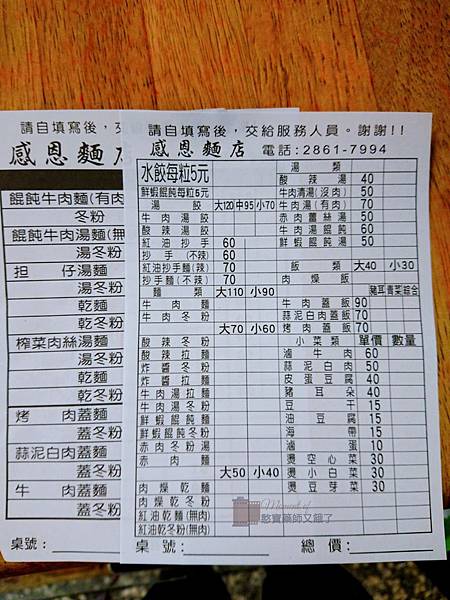 請自填寫後，交給
感恩麵店
餛飩牛肉麵(有肉
冬粉
餛飩牛肉湯麵(無
湯冬粉
担仔湯麵
湯冬粉
乾麵
乾冬粉
榨菜肉絲湯麵
湯冬粉
乾麵
乾冬粉
烤肉蓋麵
蓋冬粉
蒜泥白肉蓋麵
蓋冬粉
牛肉蓋麵
蓋冬粉
桌號:
請自填寫後，交給服務人員。謝謝!!
感恩麵店 電話:2861-7994
水餃每粒5元
鮮蝦餛飩每粒6元
湯餃 大120 中95 小70
牛肉湯餃
酸辣湯餃
紅油抄手 60
抄手(不辣) 60
紅油抄手麵(辣) 70
抄手麵(不辣) 70
麵類 大110 小90
牛肉麵
牛肉冬粉
大70 小60
酸辣冬粉
酸辣拉麵
炸醬冬粉
炸醬拉麵
牛肉湯拉麵
牛肉湯冬粉
鮮蝦餛飩麵
鮮蝦餛飩冬粉
赤肉冬粉湯
赤肉麵
大50 小40
肉燥乾麵
肉燥乾冬粉
紅油乾麵(無肉)
紅油乾冬(無肉)
湯類
酸辣湯 40
牛肉清湯(沒肉) 50
牛肉湯(有肉) 70
赤肉蘿絲湯 50
牛肉湯餛飩 60
鮮蝦餛飩湯 50
飯類 大40 小30
肉燥飯
豬耳 青菜 綜合
牛肉蓋飯 90
蒜泥白肉蓋飯 70
烤肉蓋飯 70
小菜類 單價 數量
滷牛肉 60
蒜泥白肉 50
皮蛋豆腐 40
豬耳朵 40
豆干 15
油豆腐 15
海帶 15
滷蛋 10
燙空心菜 30
燙小白菜 30
燙豆芽菜 30
Moment of
憨寶藥師又餓了
桌號: 總價: